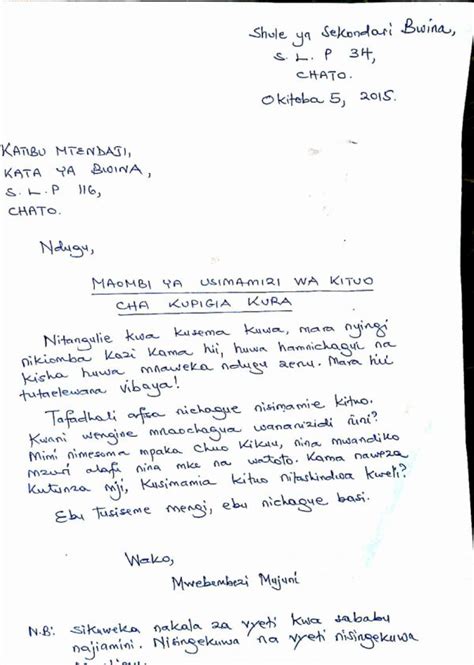 Shule ya Sekondari Bwina,
S. L. P 34,
CHATO.
Okitoba 5, 2015.
KATIBU MTENDAJI,
KATA YA BWINA,
S. L. P 116,
CHATO.
Ndugu,
MAOMBI YA USIMAMIZI WA KITUO
CHA KUPIGIA KURA
Nitangulie kwa kusema kuwa, mara nyingi
nikiomba kazi kama hii, huwa hamnichagui na
kisha huwa mnaweka ndugu zenu. Mara hii
tutaelewana vibaya!
Tafadhali afisa nichague nisimamie kituo.
Kwani wengine mnaochagua wananizidi nini?
Mimi nimesoma mpaka Chuo Kikuu, nina mwandiko
mzuri alafu nina mke na watoto. Kama naweza
kutunza mji, kusimamia kituo nitashindwa kweli?
Ebu tusiseme mengi, ebu nichague basi.
Wako,
Mwebembezi Mujuni
N.B: Sikuweka nakala za vyeti kwa sababu
najiamini. Nisingekuwa na vyeti nisingekuwa